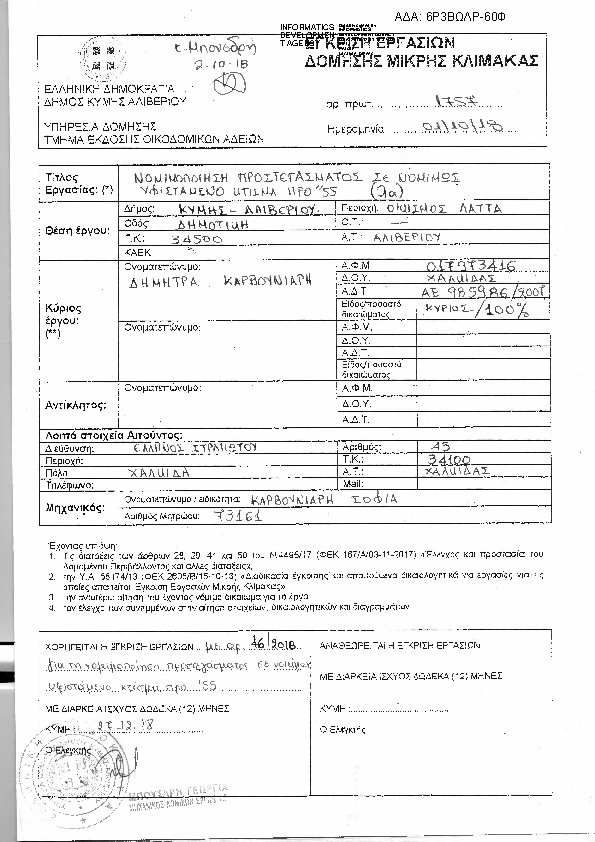 ΑΔΑ: 6Ρ3ΒΩΛΡ-60Φ
INFORMATICS
DEVELOPMEN
T AGE
ΕΓΚΡΙΣΗ ΕΡΓΑΣΙΩΝ
ΔΟΜΗΣΗΣ ΜΙΚΡΗΣ ΚΛΙΜΑΚΑΣ
2-10-18
ΕΛΛΗΝΙΚΗ ΔΗΜΟΚΡΑΤΙΑ
ΔΗΜΟΣ ΚΥΜΗΣ ΑΛΙΒΕΡΙΟΥ
αρ. πρωτ.
ΥΠΗΡΕΣΙΑ ΔΟΜΗΣΗΣ
ΤΜΗΜΑ ΕΚΔΟΣΗΣ ΟΙΚΟΔΟΜΙΚΩΝ ΑΔΕΙΩΝ
Ημερομηνία 01/10/18
Τίτλος
Εργασίας: (*)
ΝΟΜΙΜΟΠΟΙΗΣΗ ΠΡΟΣΤΕΓΑΣΜΑΤΟΣ ΣΕ ΝΟΜΙΜΩΣ
ΥΦΙΣΤΑΜΕΝΟ ΚΤΙΣΜΑ ΠΡΟ '55
Θέση έργου:
Δήμος: ΚΥΜΗΣ - ΑΛΙΒΕΡΙΟΥ Περιοχή: ΟΙΚΙΣΜΟΣ ΛΑΤΤΑ
Οδός ΔΗΜΟΤΙΚΗ Ο.Τ.: —
Τ.Κ.: 34500 Α.Τ.: ΑΛΙΒΕΡΙΟΥ
ΚΑΕΚ
Κύριος
έργου:
(**)
Ονοματεπώνυμο:
ΔΗΜΗΤΡΑ ΚΑΡΒΟΥΝΙΑΡΗ
Α.Φ.Μ.
Δ.Ο.Υ. ΧΑΛΚΙΔΑΣ
Α.Δ.Τ. ΑΕ 985986/2007
Είδος/ποσοστό
δικαιώματος ΚΥΡΙΟΣ-/100%
Ονοματεπώνυμο: Α.Φ.Μ.
Δ.Ο.Υ.
Α.Δ.Τ.
Είδος/ποσοστό
δικαιώματος
Αντίκλητος:
Ονοματεπώνυμο: Α.Φ.Μ.
Δ.Ο.Υ.
Α.Δ.Τ.
Λοιπά στοιχεία Αιτούντος:
Διεύθυνση: ΣΤΡΑΤΙΩΤΟΥ Αριθμός:
Περιοχή: Τ.Κ.: 34100
Πόλη ΧΑΛΚΙΔΑ Α.Τ.: ΧΑΛΚΙΔΑΣ
Τηλέφωνο: Mail:
Μηχανικός:
Ονοματεπώνυμο / ειδικότητα: ΚΑΡΒΟΥΝΙΑΡΗ ΣΟΦΙΑ
Αριθμός Μητρώου: 73161
Έχοντας υπόψη:
1. Τις διατάξεις των άρθρων 28, 29, 41 και 50 του Ν.4495/17 (ΦΕΚ 167/Α/03-11-2017) «Έλεγχος και προστασία του
Δομημένου Περιβάλλοντος και άλλες διατάξεις»,
2. την Υ.Α. 55174/13 (ΦΕΚ 2605/Β/15-10-13) «Διαδικασία έγκρισης και απαιτούμενα δικαιολογητικά για εργασίες για τις
οποίες απαιτείται Έγκριση Εργασιών Μικρής Κλίμακας»
3. την ανωτέρω αίτηση του έχοντος νόμιμο δικαίωμα για το έργο
4. τον έλεγχο των συνημμένων στην αίτηση στοιχείων, δικαιολογητικών και διαγραμμάτων
ΧΟΡΗΓΕΙΤΑΙ Η ΕΓΚΡΙΣΗ ΕΡΓΑΣΙΩΝ με αρ. 16/2018
για τη νομιμοποίηση προστεγάσματος σε νομίμως
υφιστάμενο κτίσμα προ '55
ΜΕ ΔΙΑΡΚΕΙΑ ΙΣΧΥΟΣ ΔΩΔΕΚΑ (12) ΜΗΝΕΣ
ΚΥΜΗ:
Ο Ελεγκτής
ΜΠΟΥΣΑΡΗ ΓΕΩΡΓΙΑ
ΑΝΑΘΕΩΡΕΙΤΑΙ Η ΕΓΚΡΙΣΗ ΕΡΓΑΣΙΩΝ
ΜΕ ΔΙΑΡΚΕΙΑ ΙΣΧΥΟΣ ΔΩΔΕΚΑ (12) ΜΗΝΕΣ
ΚΥΜΗ:
Ο Ελεγκτής